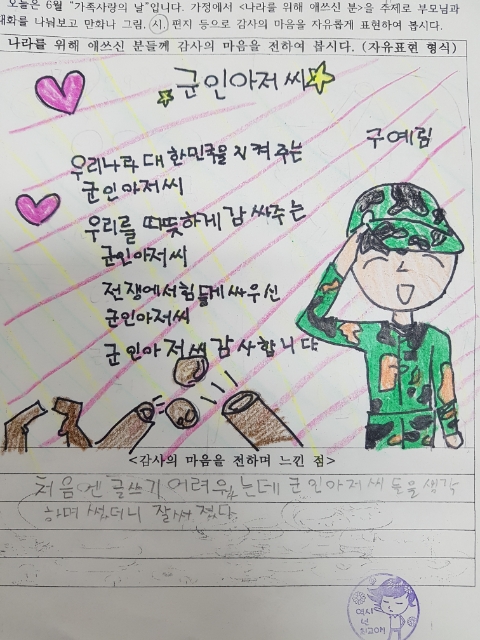 오늘은 6월 "가족사랑의 날"입니다. 가정에서 <나라를 위해 애쓰신 분>을 주제로 부모님과
대화를 나눠보고 만화나 그림, 시, 편지 등으로 감사의 마음을 자유롭게 표현하여 봅시다.
나라를 위해 애쓰신 분들께 감사의 마음을 전하여 봅시다. (자유표현 형식)
군인아저씨
구예림
우리나라 대한민국을 지켜 주는
군인아저씨
우리를 따뜻하게 감싸주는
군인아저씨
전쟁에서 힘들게 싸우신
군인아저씨
군인아저씨 감사합니다
<감사의 마음을 전하며 느낀 점>
처음엔 글쓰기 어려웠는데 군인아저씨들을 생각
하며 썼더니 잘써졌다.
역시
넌
최고야